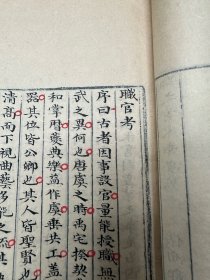 職官考
序曰古者因事設官量能授職無
武之異何也唐虞之時禹宅揆契
和掌曆夔典樂益作虞垂共工蓋
器其位皆公卿也其人皆聖賢也
清高而下視曲藝多能之流